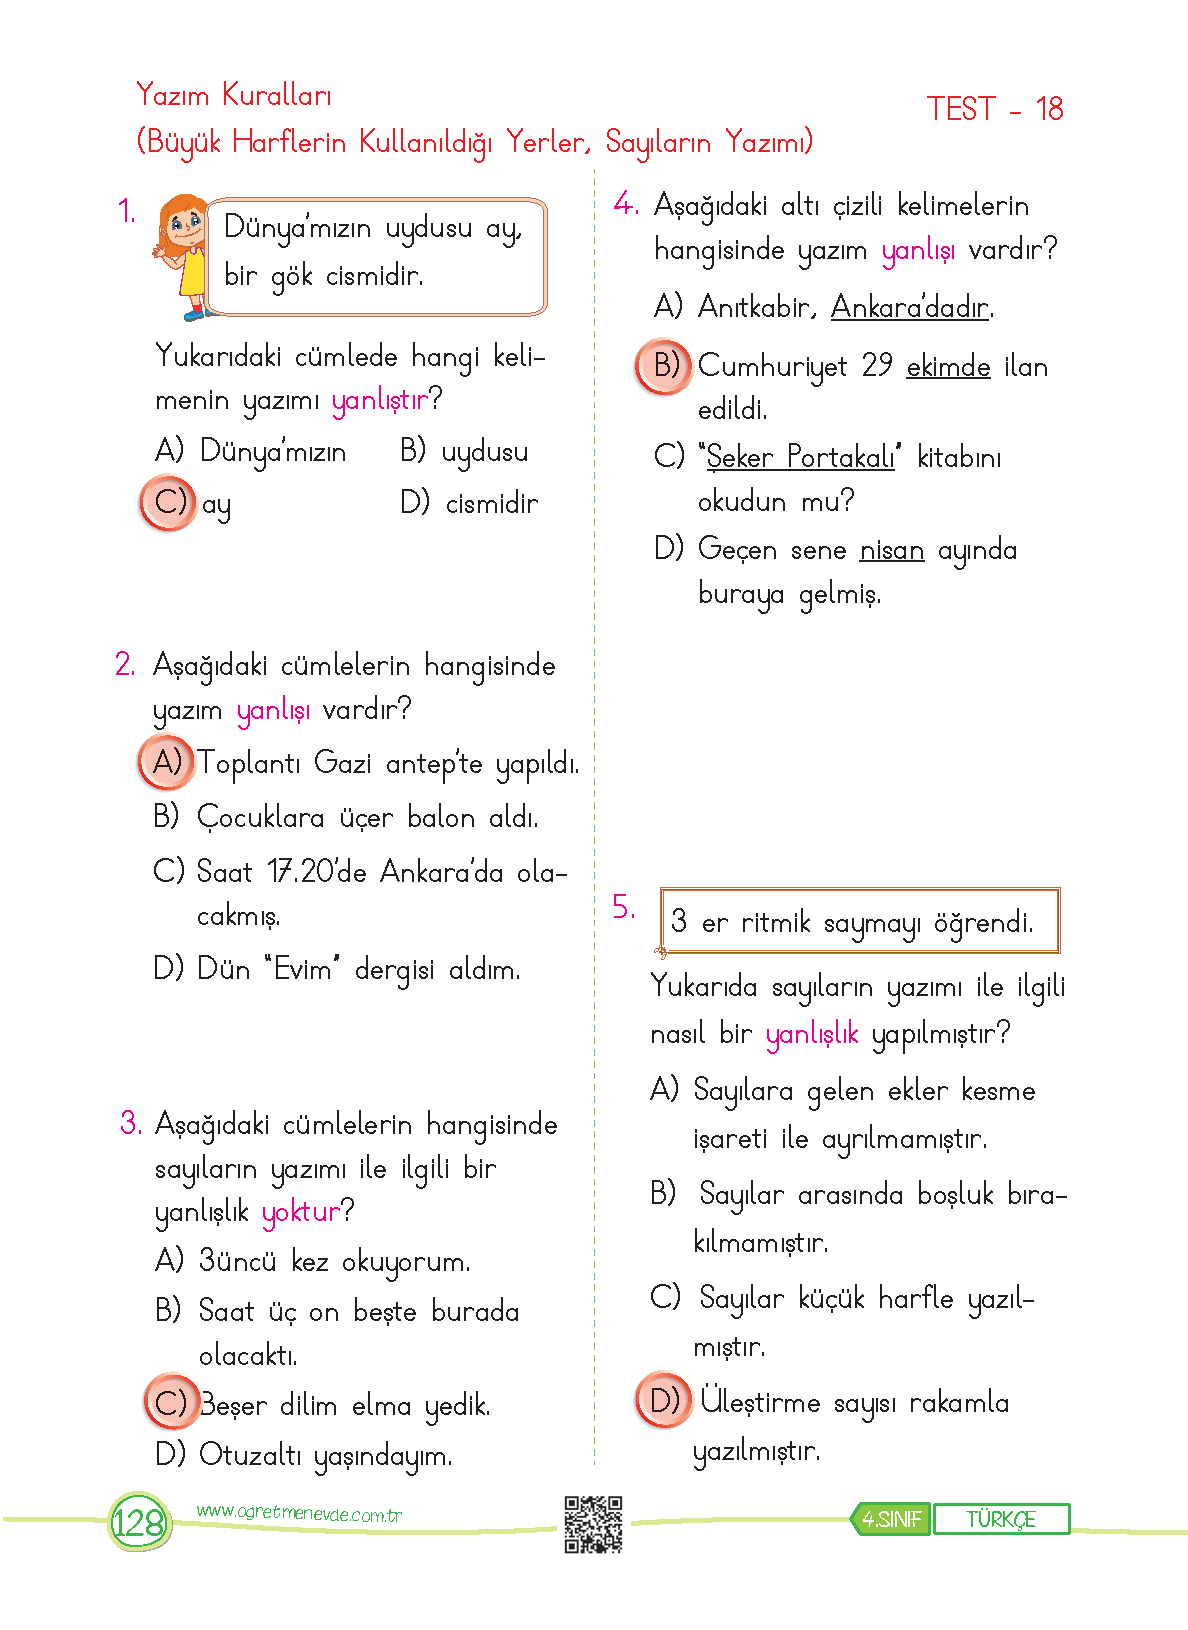 Yazım Kuralları
(Büyük Harflerin Kullanıldığı Yerler, Sayıların Yazımı)
TEST - 18
1.
Dünya'mızın uydusu ay,
bir gök cismidir.
Yukarıdaki cümlede hangi keli-
menin yazımı yanlıştır?
A) Dünya'mızın B) uydusu
C) ay D) cismidir
2. Aşağıdaki cümlelerin hangisinde
yazım yanlışı vardır?
A) Toplantı Gazi antep'te yapıldı.
B) Çocuklara üçer balon aldı.
C) Saat 17.20'de Ankara'da ola-
cakmış.
D) Dün “Evim” dergisi aldım.
3. Aşağıdaki cümlelerin hangisinde
sayıların yazımı ile ilgili bir
yanlışlık yoktur?
A) 3üncü kez okuyorum.
B) Saat üç on beşte burada
olacaktı.
C) Beşer dilim elma yedik.
D) Otuzaltı yaşındayım.
4. Aşağıdaki altı çizili kelimelerin
hangisinde yazım yanlışı vardır?
A) Anıtkabir, Ankara'dadır.
B) Cumhuriyet 29 ekimde ilan
edildi.
C) “Şeker Portakalı” kitabını
okudun mu?
D) Geçen sene nisan ayında
buraya gelmiş.
5.
3 er ritmik saymayı öğrendi.
Yukarıda sayıların yazımı ile ilgili
nasıl bir yanlışlık yapılmıştır?
A) Sayılara gelen ekler kesme
işareti ile ayrılmamıştır.
B) Sayılar arasında boşluk bıra-
kılmamıştır.
C) Sayılar küçük harfle yazıl-
mıştır.
D) Üleştirme sayısı rakamla
yazılmıştır.
128
www.ogretmenevde.com.tr
4.SINIF TÜRKÇE